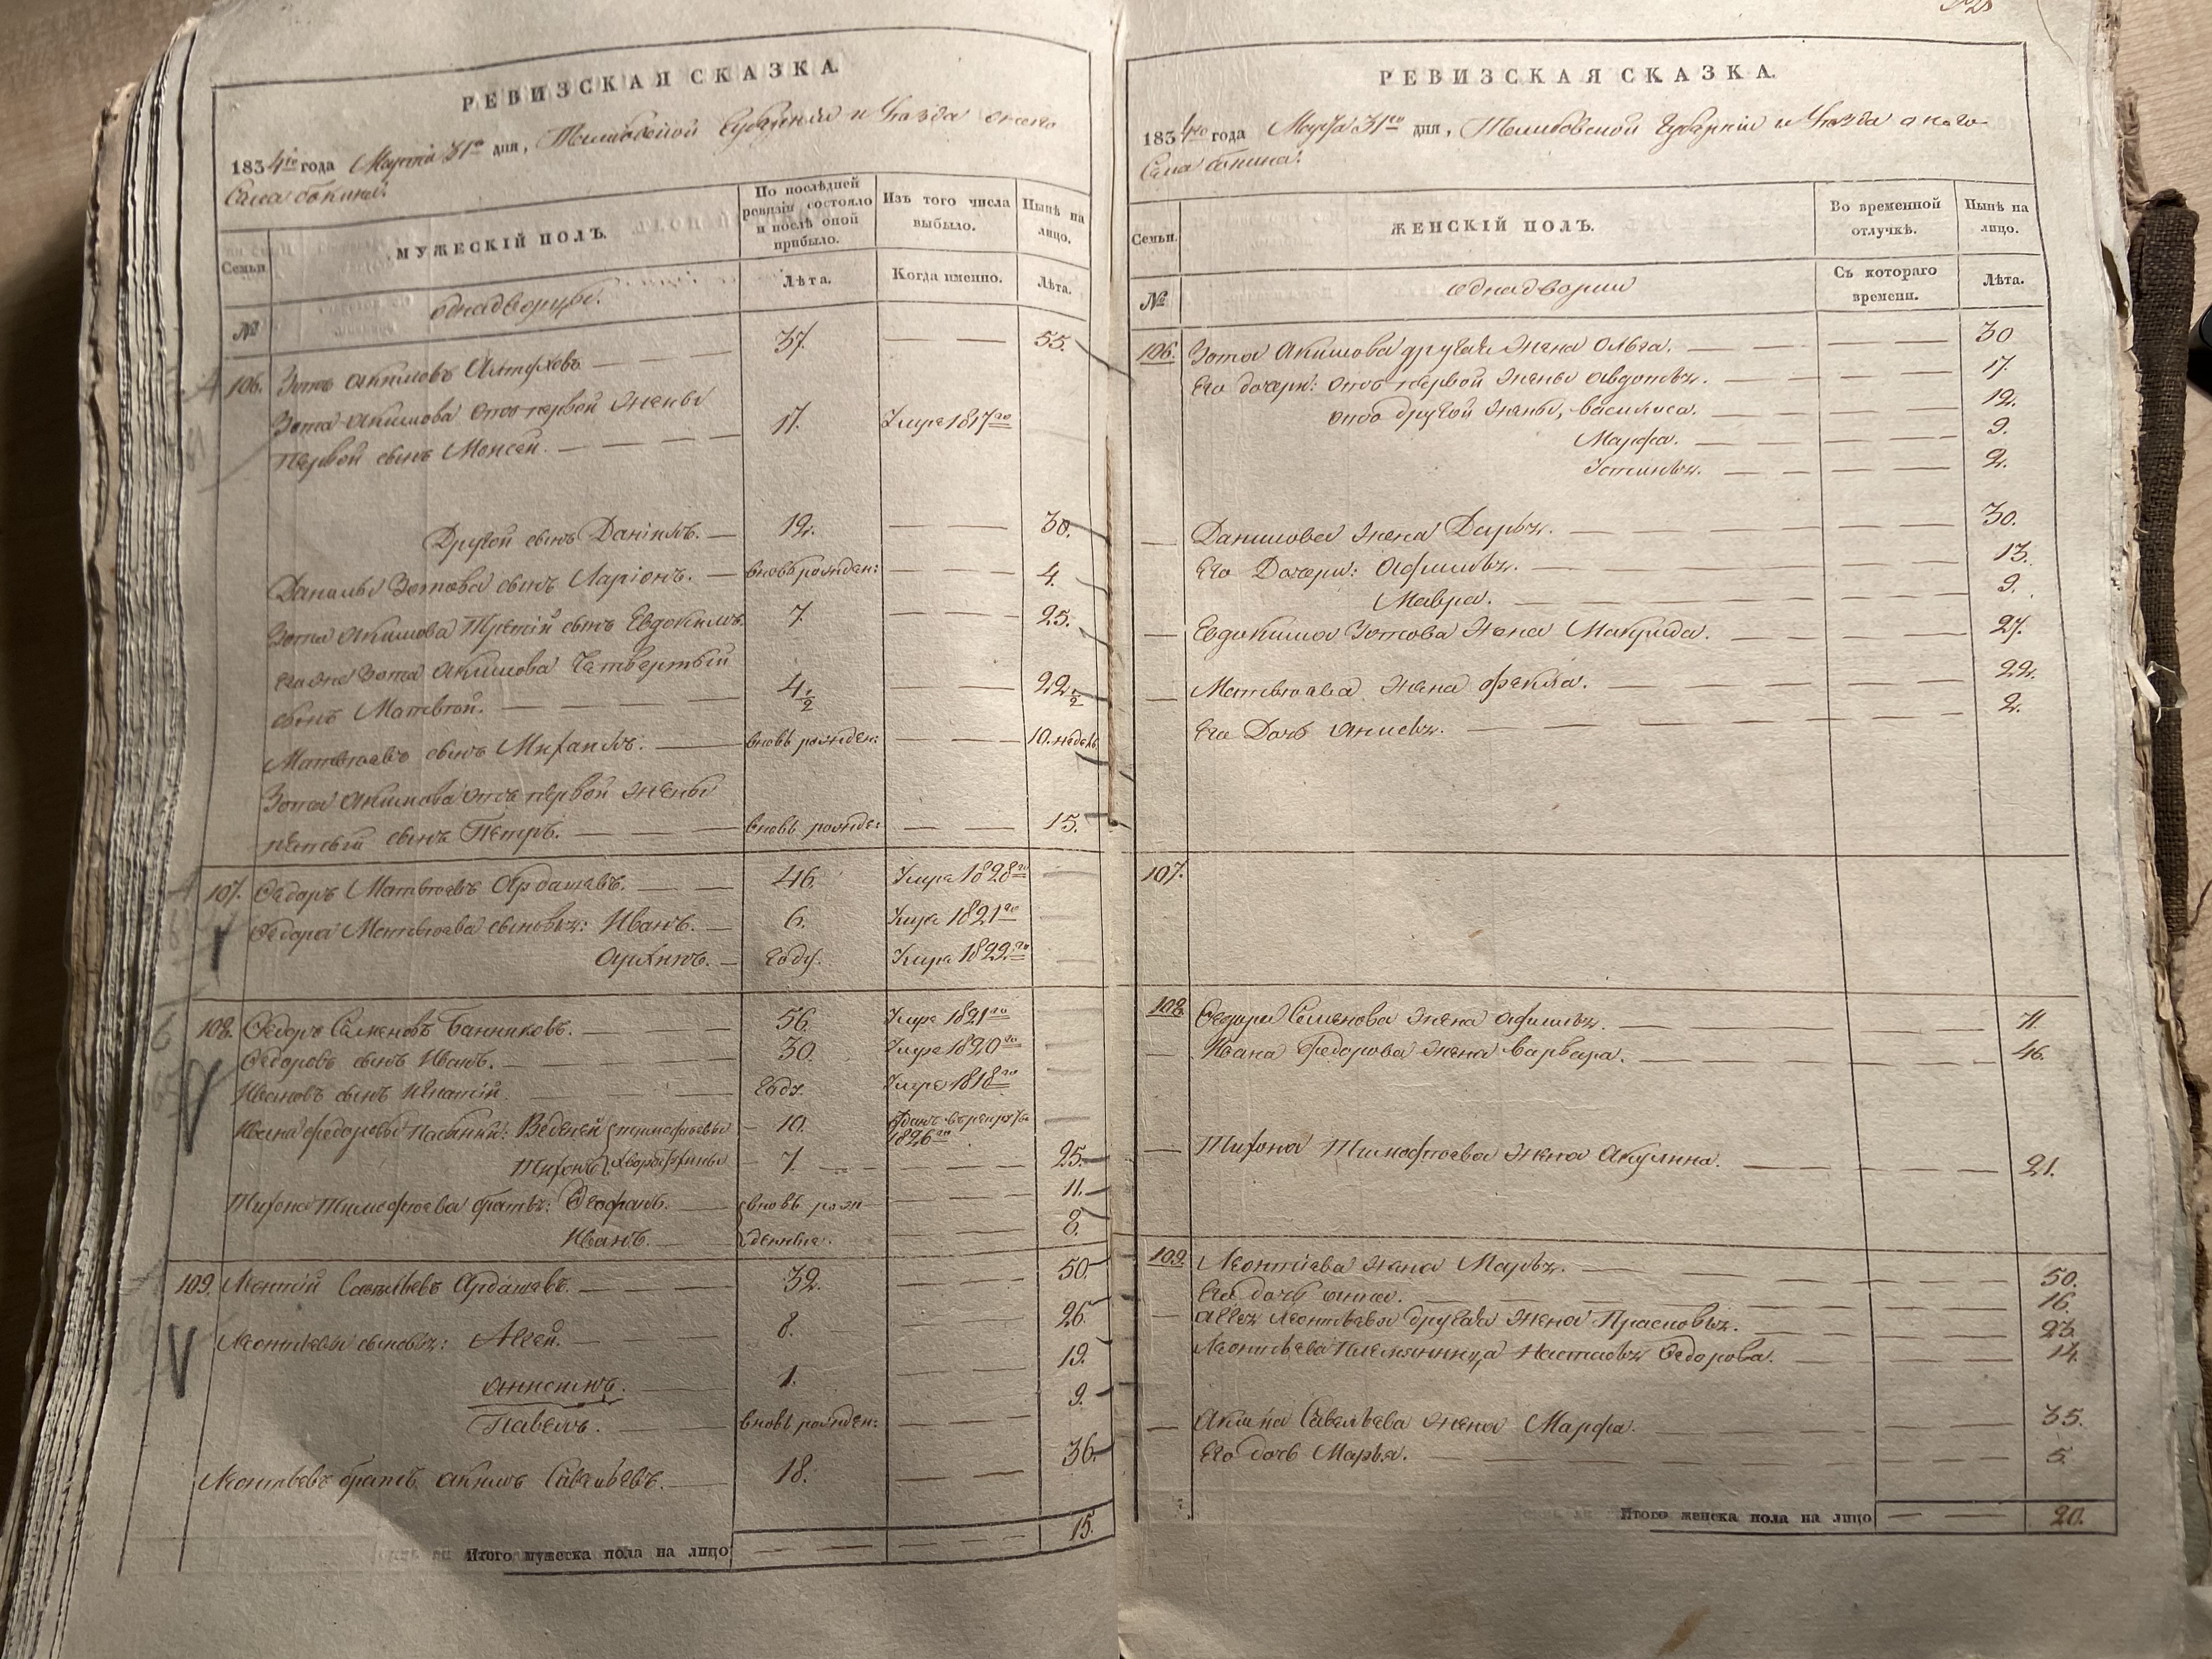 РЕВИЗСКАЯ СКАЗКА.
1834го года Марта 31го дня, Тамбовской Губернии и Уезда онаго
Села
Семьи.
МУЖЕСКІЙ ПОЛЪ.
По послѣдней ревизіи состояло и послѣ оной прибыло.
Изъ того числа выбыло.
Нынѣ на лицо.
№
однодворцы.
Лѣта.
Когда именно.
Лѣта.
106. Зотъ Акимовъ — 37. — — 55.
Зота Акимова отъ первой жены
Первой сынъ Моисей. — 17. Умре 1817го
Другой сынъ Данилъ. — 12. — — 30.
Данилы Зотова сынъ Ларіонъ. — вновь рожден: — — 4.
Зота Акимова Третій сынъ Евдокимъ. 7. — — 25.
Его же Зота Акимова Четвертый
сынъ Матвѣй. — 4 1/2 — — 22 1/2
Матвѣевъ сынъ Михаилъ. — вновь рожден: — — 10. недель
Зота Акимова отъ первой жены
пятый сынъ Петръ. — вновь рожде: — — 15.
107. Ѳедоръ Матвѣевъ Ардашевъ. — 46. Умре 1828го
Ѳедора Матвѣева сыновья: Иванъ. — 6. Умре 1821го
Архипъ. — Году. Умре 1829.го
108. Ѳедоръ Семеновъ Банниковъ. — 56. Умре 1821го
Ѳедоровъ сынъ Иванъ. — 30. Умре 1820го
Ивановъ сынъ Игнатій. — Году. Умре 1818го
Ивана Федорова Пасынки: Веденей Тимофѣевы — 10. Отданъ в рекруты 1826го
Тихонъ — 7. — — 25.
Тихона Тимофѣева братья: Ѳеофанъ. — вновь рож — — 11.
Иванъ. — денные. — — 8.
109. Леонтій Савельевъ Ардашевъ. — 32. — — 50.
Леонтьевы сыновья: Агей. — 8. — — 26.
Анисимъ. — 1. — — 19.
Павелъ. — вновь рожден: — — 9.
Леонтьевъ братъ Акимъ Савельевъ. — 18. — — 36.
Итого мужеска пола на лицо — — — 15.
РЕВИЗСКАЯ СКАЗКА.
1834го года Марта 31го дня, Тамбовской Губерніи и Уезда онаго
Села
Семьи.
ЖЕНСКІЙ ПОЛЪ.
Во временной отлучкѣ.
Нынѣ на лицо.
№
однодворки
Съ котораго времени.
Лѣта.
106. Зота Акимова другая жена Ольга. — — 30
Его дочери: отъ первой жены Авдотья. — — 17.
отъ другой жены, Василиса. — — 12.
Марфа. — — 9.
Устинья. — — 2.
— Данилова жена Дарья. — — 30.
Его Дочери: Афимья. — — 13.
Мавра. — — 9.
— Евдокима Зотова жена Макрида. — — 27.
— Матвѣева жена Фекла. — — 22.
Его Дочь Анисья. — — 2.
107.
108. Ѳедора Семенова жена Афимья. — — 71.
— Ивана Федорова жена Варвара. — — 46.
— Тихона Тимофѣева жена Акулина. — — 21.
109. Леонтіева жена Марья. — — 50.
Его дочь Анна. — — 16.
— Агея Леонтьева другая жена Прасковья. — — 23.
Леонтьева Племянница Настасья Ѳедорова. — — 14.
— Акима Савельева жена Марфа. — — 35.
Его дочь Марья. — — 5.
Итого женска пола на лицо — — 20.